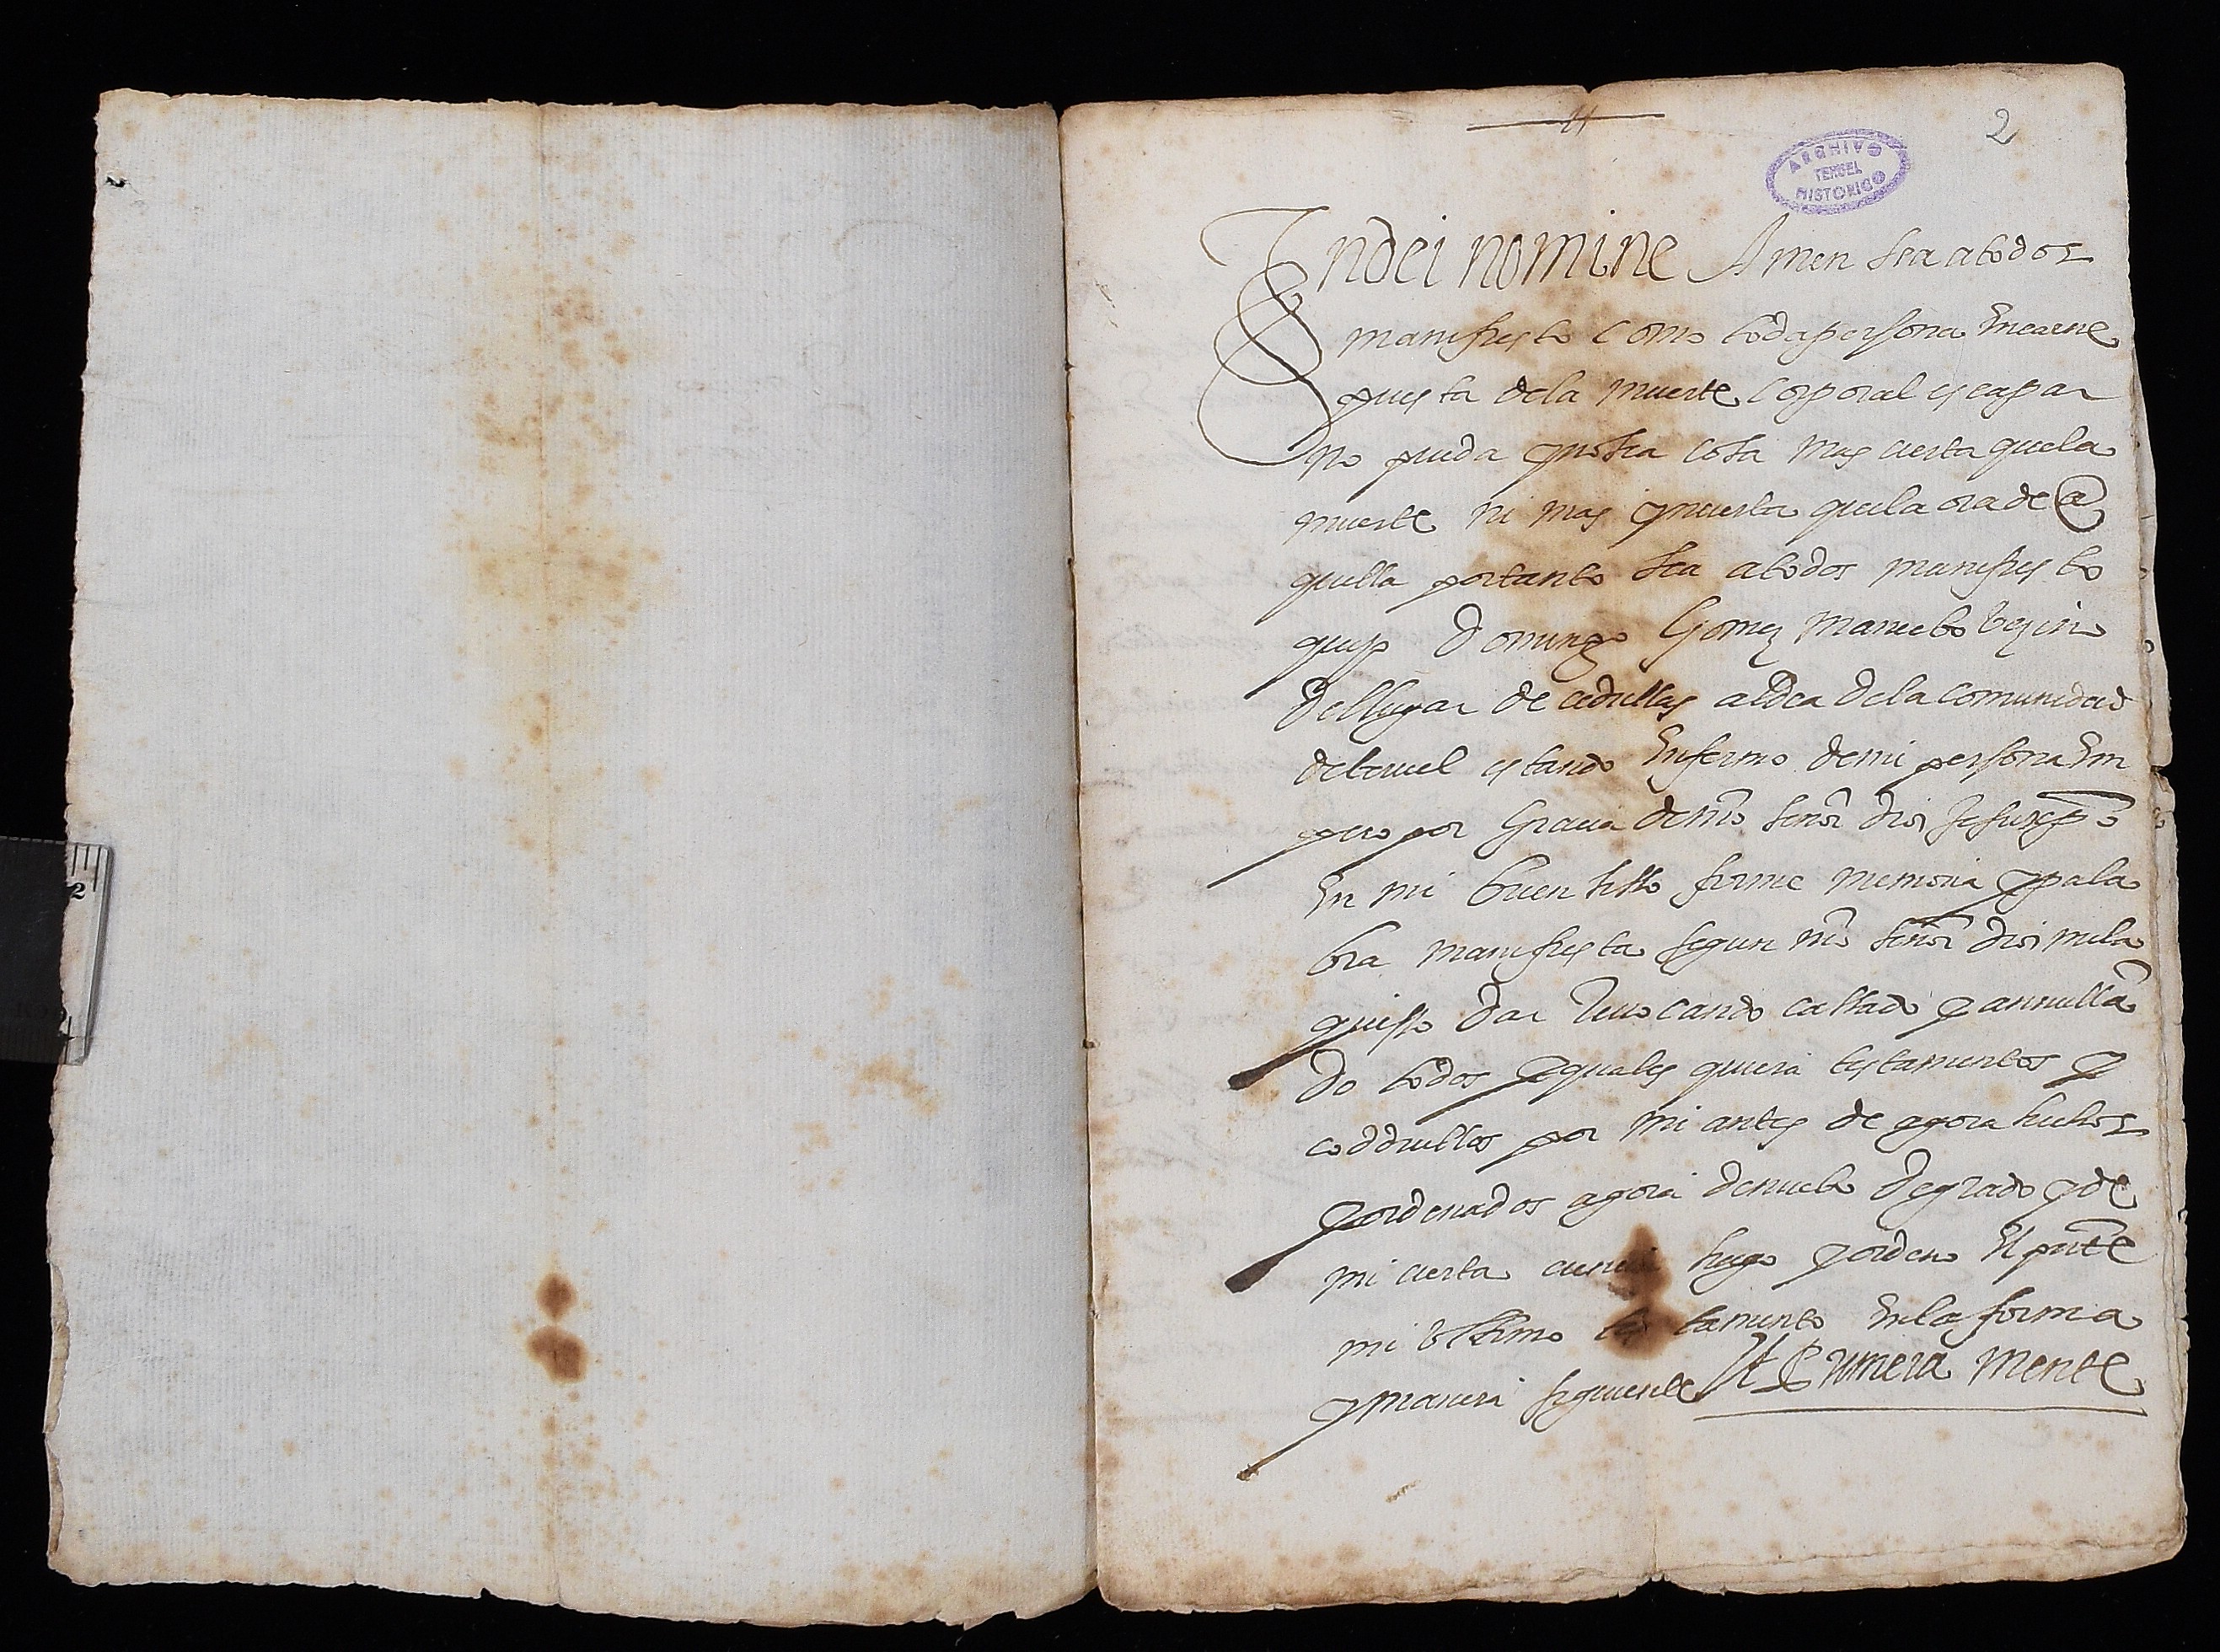 2
ARCHIVO
TERUEL
HISTORICO
Indei nomine Amen sea atodos
manifiesto como toda persona en carne
puesta dela muerte corporal escapar
no pueda y no sea cosa mas cierta quela
muerte ni mas ynuerta quela ora de a
quella portanto sea atodos manifiesto
que yo Domingo Gomez mancebo vezino
del lugar de cedrillas aldea dela comunidad
deteruel estando enfermo de mi persona em
pero por gracia de nro señor dios Jesuxpo
en mi buen sesso firme memoria y pala
bra manifiesta segun nro señor dios mela
quisso dar reuocando cassado y annullā
do todos y quales quiera testamentos y
coddicillos por mi antes de agora hechos
y ordenados agora denuebo de grado y de
mi cierta ciencia hago y ordeno el pnte
mi vltimo testamento en la forma
y manera siguiente Et Primera mente